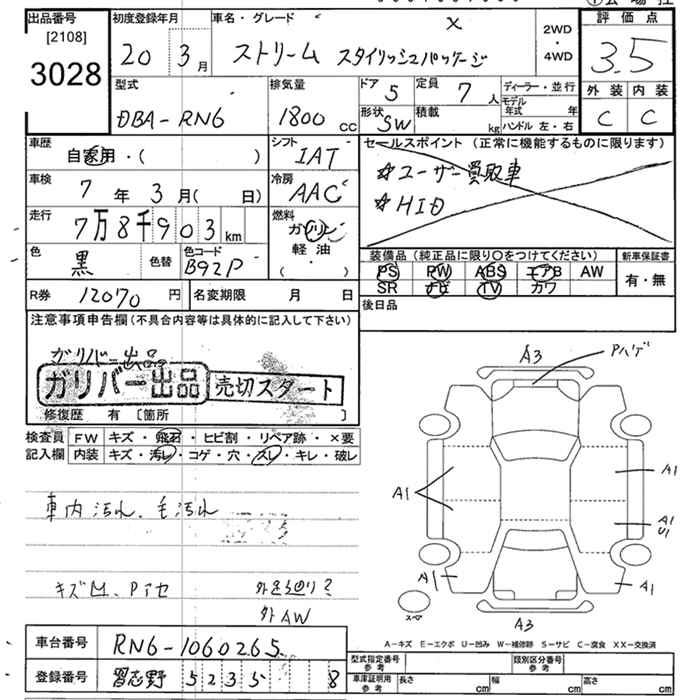 出品番号
[2108]
3028
初度登録年月
20 3月
車名・グレード
ストリーム スタイリッシュパッケージ X
2WD
・
4WD
評価点
3.5
外装 内装
C C
型式
DBA-RN6
排気量
1800 CC
ドア 5
形状 SW
定員 7 人
積載 kg
ディーラー・並行
モデル年式 年
ハンドル 左・右
車歴
自家用・( )
シフト
IAT
セールスポイント (正常に機能するものに限ります)
☆ユーザー買取車
☆HID
車検
7年 3月( 日)
冷房
AAC
走行
7万8千903km
燃料
ガソリン
軽油
( )
色
黒
色替
色コード
B92P
装備品 (純正品に限り○をつけてください)
PS PW ABS エアB AW
SR ナビ TV カワ
新車保証書
有・無
R券 12070円
名変期限 月 日
後日品
注意事項申告欄 (不具合内容等は具体的に記入して下さい)
ガリバー出品
ガリバー出品 売切スタート
修復歴 有 [箇所 ]
検査員
記入欄
FW キズ・飛石・ヒビ割・リペア跡・×要
内装 キズ・汚レ・コゲ・穴・スレ・キレ・破レ
車内汚れ、毛汚れ
キズ凹、Pイセ
外AW
A3
Pハゲ
A1
A1
A1
U1
A1
A1
スペア
A3
A-キズ E-エクボ U-凹み W-補修跡 S-サビ C-腐食 XX-交換済
車台番号 RN6-1060265
登録番号 習志野 5235 8
型式指定番号
参考
類別区分番号
参考
車庫証明用
参考
長さ cm
幅 cm
高さ cm